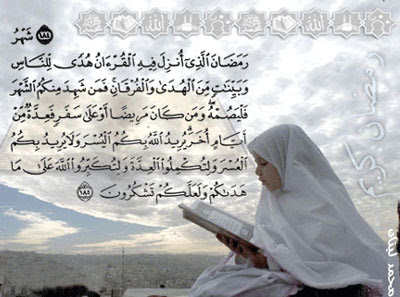 شَهْرُ ١٨٤
رَمَضَانَ ٱلَّذِىٓ أُنزِلَ فِيهِ ٱلْقُرْءَانُ هُدًى لِّلنَّاسِ
وَبَيِّنَٰتٍ مِّنَ ٱلْهُدَىٰ وَٱلْفُرْقَانِ فَمَن شَهِدَ مِنكُمُ ٱلشَّهْرَ
فَلْيَصُمْهُ وَمَن كَانَ مَرِيضًا أَوْ عَلَىٰ سَفَرٍ فَعِدَّةٌ مِّنْ
أَيَّامٍ أُخَرَ يُرِيدُ ٱللَّهُ بِكُمُ ٱلْيُسْرَ وَلَا يُرِيدُ بِكُمُ
ٱلْعُسْرَ وَلِتُكْمِلُوا۟ ٱلْعِدَّةَ وَلِتُكَبِّرُوا۟ ٱللَّهَ عَلَىٰ مَا
هَدَىٰكُمْ وَلَعَلَّكُمْ تَشْكُرُونَ ١٨٥
رمضان كريم